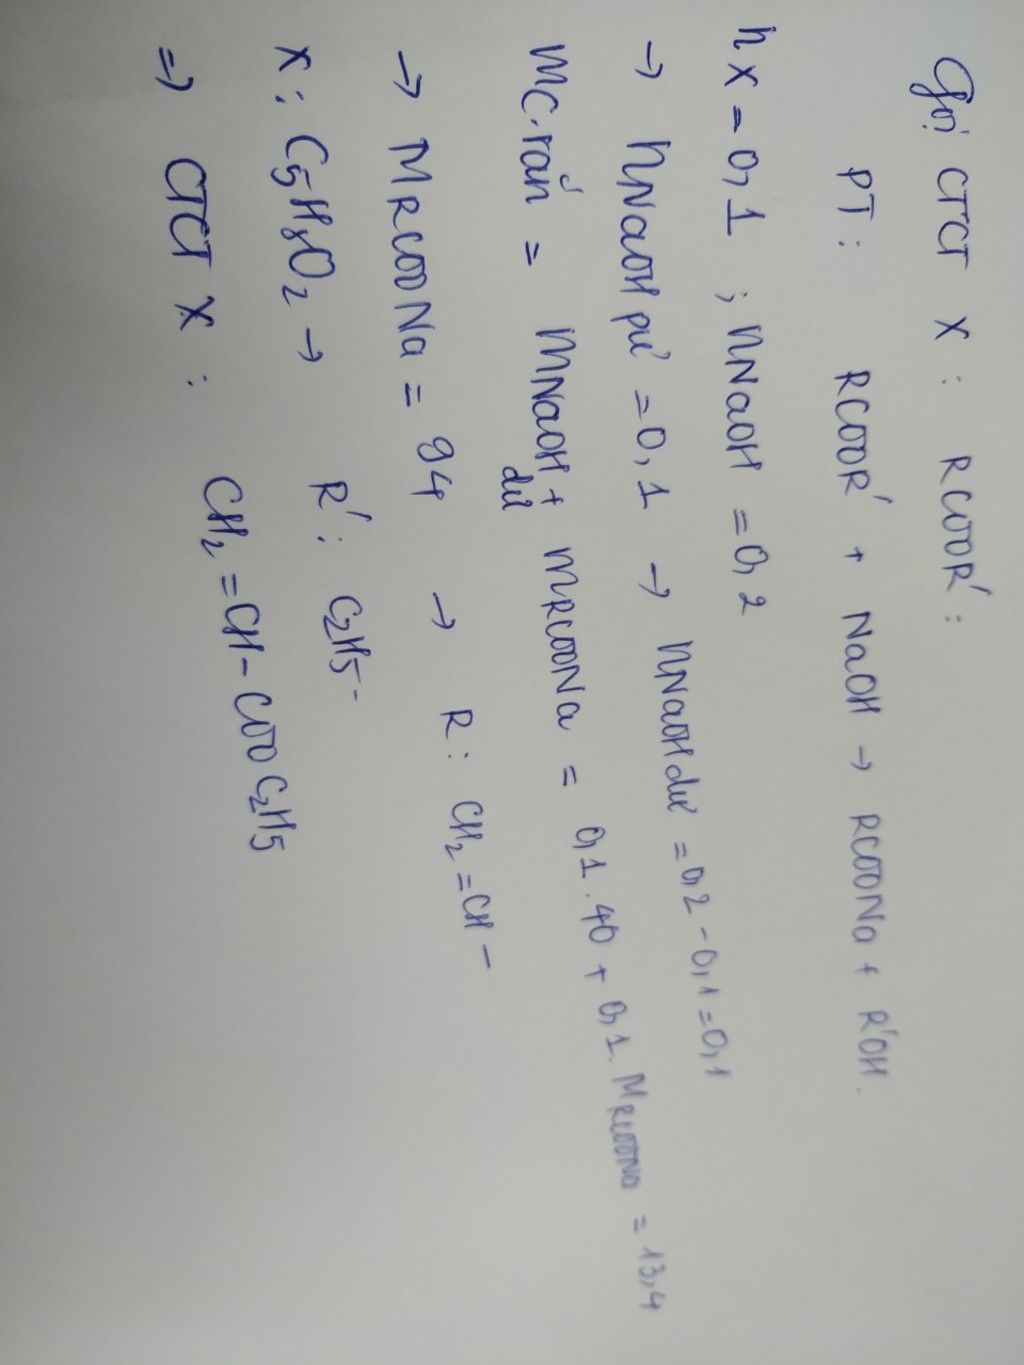 Gọi CTCT X : RCOOR' :
PT : RCOOR' + NaOH → RCOONa + R'OH.
nX = 0,1 ; nNaOH = 0,2
→ nNaOH pứ = 0,1 → nNaOH dư = 0,2 - 0,1 = 0,1
mC.rắn = mNaOH dư + mRCOONa = 0,1 . 40 + 0,1 . MRCOONa = 13,4
→ MRCOONa = 94 → R : CH2 = CH -
X : C5H8O2 → R' : C2H5 -
=> CTCT X : CH2 = CH - COO C2H5